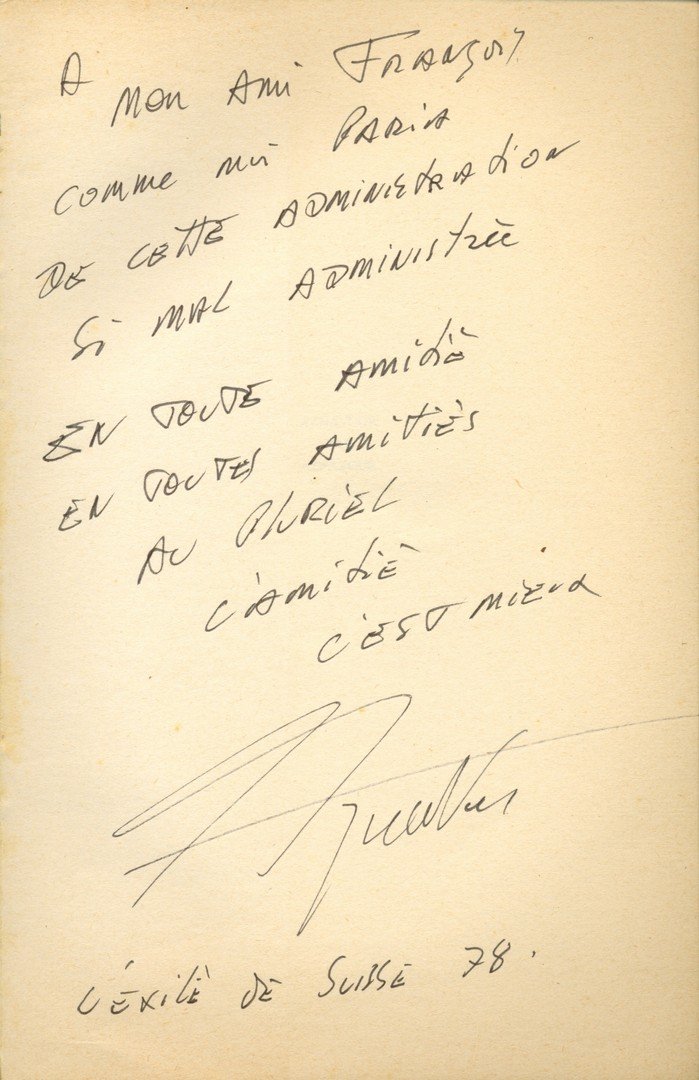 A
MON AMI FRANÇOIS
COMME MOI PARIA
DE CETTE ADMINISTRATION
SI MAL ADMINISTRÉE
EN TOUTE AMITIÈ
EN TOUTES AMITIÈS
AU PLURIEL
L'AMITIÈ
C'EST MIEUX
L'ÉXILÈ DE SUISSE 78.